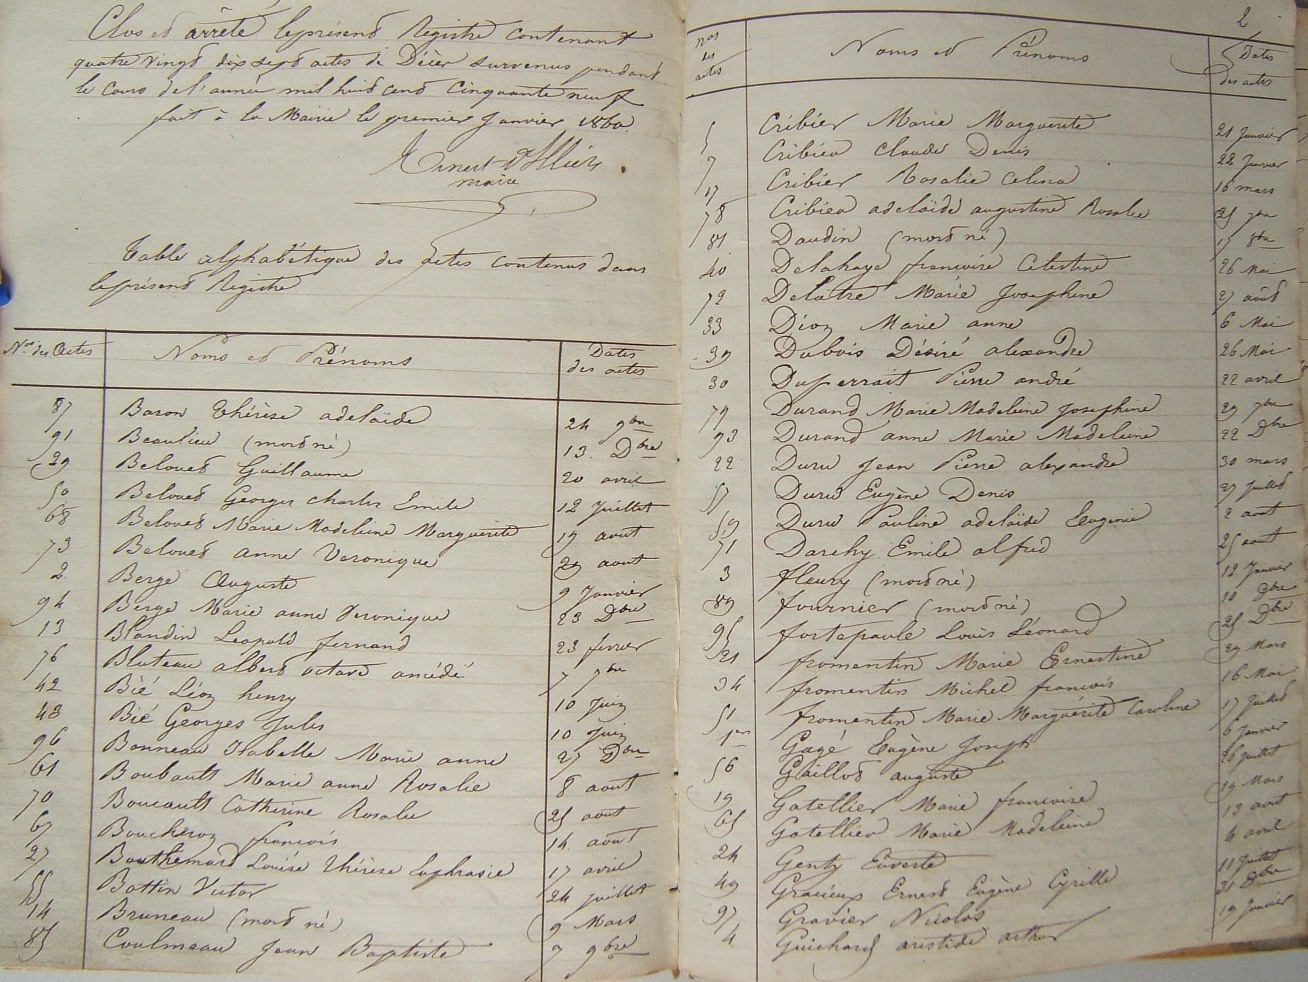 Clos et arrêté le présent Registre contenant
quatre vingt dix sept actes de Décès survenus pendant
le cours de l'année mil huit cent cinquante neuf
fait à la Mairie le premier Janvier 1860
Ernest
maire
Table alphabétique des actes contenus dans
le présent Registre
Nos des Actes Noms et Prénoms Dates des actes
87 Baron Thérèse adelaïde 24 9bre
91 Beaulieu (mort né) 13 Dbre
29 Beloues Guillaume 20 avril
50 Beloues Georges charles Emile 12 Juillet
68 Beloues Marie Madeleine Marguerite 19 aout
73 Beloues anne Veronique 29 aout
2 Berge Auguste 9 Janvier
94 Berge Marie anne Veronique 23 Dbre
13 Blandin Leopold fernand 23 fevrier
76 Bluteau albert octave amédé 7 7bre
42 Bié Léon henry 10 Juin
43 Bié Georges Jules 10 Juin
96 Bonneau Isabelle Marie anne 27 Dbre
61 Boubault Marie anne Rosalie 8 aout
70 Boucault Catherine Rosalie 25 aout
67 Boucheron françois 14 aout
27 Bouthemard Louise Thérèse Euphrasie 17 avril
55 Bottin Victor 24 juillet
14 Bruneau (mort né) 9 Mars
85 Coulmeau Jean Baptiste 7 9bre
2
nos des actes Noms et Prénoms Dates des actes
5 Cribier Marie Marguerite 21 Janvier
7 Cribier Claude Denis 22 Janvier
17 Cribier Rosalie Celina 16 mars
78 Cribier adelaïde augustine Rosalie 25 7bre
81 Daudin (mort né) 17 8bre
40 Delahaye françoise Celestine 26 Mai
72 Delatre Marie Josephine 27 août
33 Dion Marie anne 6 Mai
39 Dubois Désiré alexandre 26 Mai
30 Duperrait Pierre andré 22 avril
79 Durand Marie Madeleine Josephine 29 7bre
93 Durand anne Marie Madeleine 22 Dbre
22 Duru Jean Pierre alexandre 30 mars
57 Duru Eugène Denis 27 Juillet
59 Duru Pauline adelaïde Eugenie 2 aout
71 Darchy Emile alfred 25 aout
3 fleury (mort né) 12 Janvier
89 fournier (mort né) 10 Dbre
95 fortepaule Louis Léonard 25 Dbre
21 fromentin Marie Ernestine 29 Mars
34 fromentin Michel françois 16 Mai
51 fromentin Marie Marguérite Caroline 17 Juillet
1er Gagé Eugène Joseph 6 Janvier
56 Gaillot auguste 26 juillet
19 Gatellier Marie françoise 19 Mars
65 Gatellier Marie Madeleine 13 aout
24 Genty Euverte 4 avril
49 Gracieux Ernest Eugène Cyrille 11 Juillet
97 Gravier Nicolas 31 Dbre
4 Guichard aristide arthur 19 Janvier